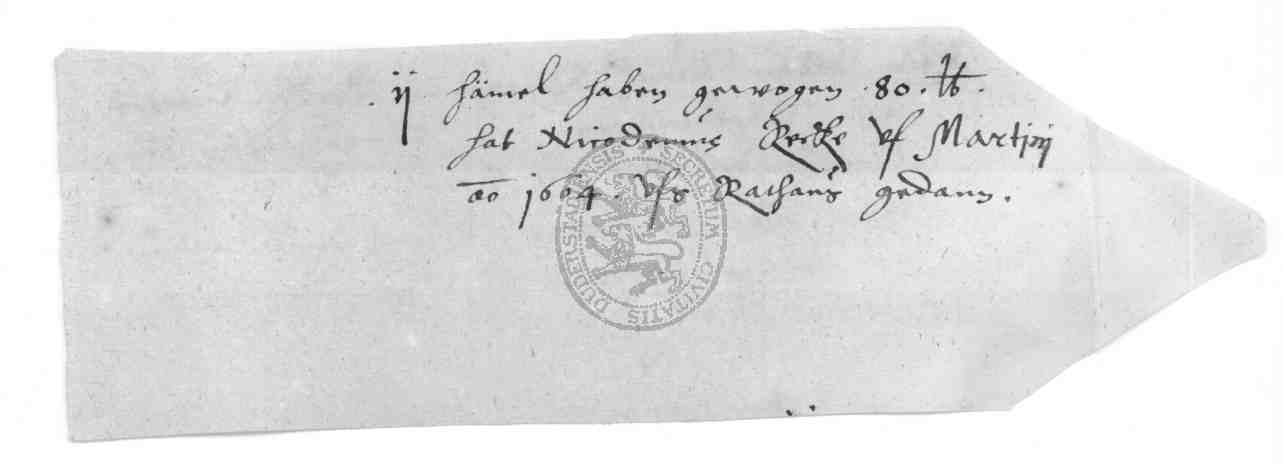 ij hämel haben gewogen 80. ℔.
hat Nicodemus Recke vf Martinj
ao 1604. vfs Rathaus gedann.
SECRETUM CIVITATIS DUDERSTADENSIS